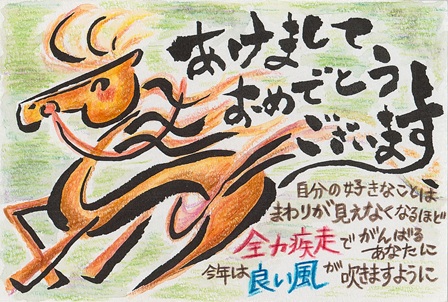 あけまして
おめでとう
ございます
自分の好きなことは
まわりが見えなくなるほど
全力疾走でがんばる
あなたに
今年は良い風が吹きますように